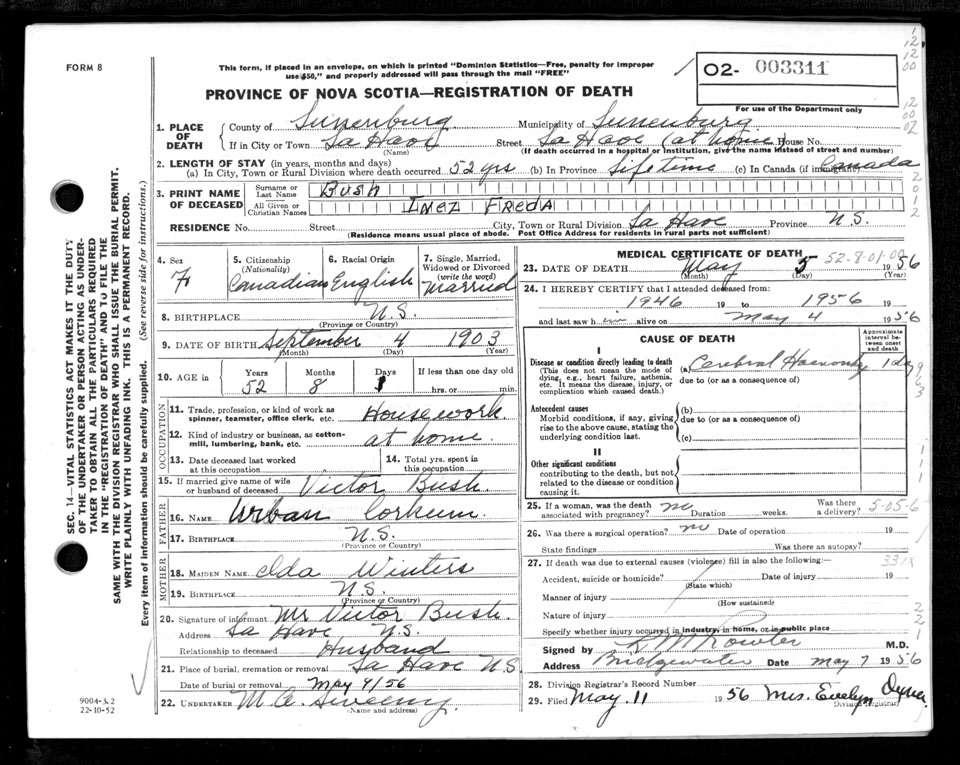 FORM 8
This form, if placed in an envelope, on which is printed "Dominion Statistics—Free, penalty for improper
use $50," and properly addressed will pass through the mail "FREE"
02- 003311
For use of the Department only
PROVINCE OF NOVA SCOTIA—REGISTRATION OF DEATH
1. PLACE OF DEATH
County of Lunenburg Municipality of Lunenburg
If in City or Town La Have Street La Have (at home) House No.
(Name) (If death occurred in a hospital or institution, give the name instead of street and number)
2. LENGTH OF STAY (in years, months and days)
(a) In City, Town or Rural Division where death occurred 52 yrs (b) In Province Lifetime (c) In Canada (if immigrant) Canada
3. PRINT NAME OF DECEASED
Surname or Last Name Bush
All Given or Christian Names Inez Freda
RESIDENCE No. Street City, Town or Rural Division La Have Province N.S.
(Residence means usual place of abode. Post Office Address for residents in rural parts not sufficient)
4. Sex F
5. Citizenship (Nationality) Canadian
6. Racial Origin English
7. Single, Married, Widowed or Divorced (write the word) Married
8. BIRTHPLACE N.S.
(Province or Country)
9. DATE OF BIRTH September 4 1903
(Month) (Day) (Year)
10. AGE in Years Months Days If less than one day old
52 8 1 hrs. or min.
OCCUPATION
11. Trade, profession, or kind of work as spinner, teamster, office clerk, etc. Housework.
12. Kind of industry or business, as cotton-mill, lumbering, bank, etc. at home.
13. Date deceased last worked at this occupation
14. Total yrs. spent in this occupation
15. If married give name of wife or husband of deceased Victor Bush.
FATHER
16. NAME Urban Corkum.
17. BIRTHPLACE N.S.
(Province or Country)
MOTHER
18. MAIDEN NAME Ada Winters
19. BIRTHPLACE N.S.
(Province or Country)
20. Signature of informant Mr Victor Bush.
Address La Have N.S.
Relationship to deceased Husband
21. Place of burial, cremation or removal La Have N.S.
Date of burial or removal May 9/56
22. UNDERTAKER M. A. Sweeny.
(Name and address)
MEDICAL CERTIFICATE OF DEATH
52-8-01-00
23. DATE OF DEATH May 5 1956
(Month) (Day) (Year)
24. I HEREBY CERTIFY that I attended deceased from:
1946 19 to 1956 19
and last saw h im alive on May 4 1956
CAUSE OF DEATH
Approximate interval between onset and death
I
Disease or condition directly leading to death
(This does not mean the mode of dying, e.g., heart failure, asthenia, etc. It means the disease, injury, or complication which caused death.)
(a) Cerebral Haemorrhage 1 day
due to (or as a consequence of)
Antecedent causes
Morbid conditions, if any, giving rise to the above cause, stating the underlying condition last.
(b)
due to (or as a consequence of)
(c)
II
Other significant conditions
contributing to the death, but not related to the disease or condition causing it.
25. If a woman, was the death associated with pregnancy? no Duration weeks. Was there a delivery? 5-05-6
26. Was there a surgical operation? no Date of operation 19
State findings Was there an autopsy?
27. If death was due to external causes (violence) fill in also the following:— 331X
Accident, suicide or homicide? Date of injury 19
(State which)
Manner of injury
(How sustained)
Nature of injury
Specify whether injury occurred in industry, in home, or in public place
Signed by M.D.
Address Bridgewater Date May 7 1956
28. Division Registrar's Record Number
29. Filed May. 11 1956 Mrs. Evelyn
Division Registrar
SEC. 14—VITAL STATISTICS ACT MAKES IT THE DUTY
OF THE UNDERTAKER OR PERSON ACTING AS UNDER-
TAKER TO OBTAIN ALL THE PARTICULARS REQUIRED
IN THE "REGISTRATION OF DEATH" AND TO FILE THE
SAME WITH THE DIVISION REGISTRAR WHO SHALL ISSUE THE BURIAL PERMIT.
WRITE PLAINLY WITH UNFADING INK. THIS IS A PERMANENT RECORD.
Every item of information should be carefully supplied. (See reverse side for instructions.)
9004-3.2
22-10-52